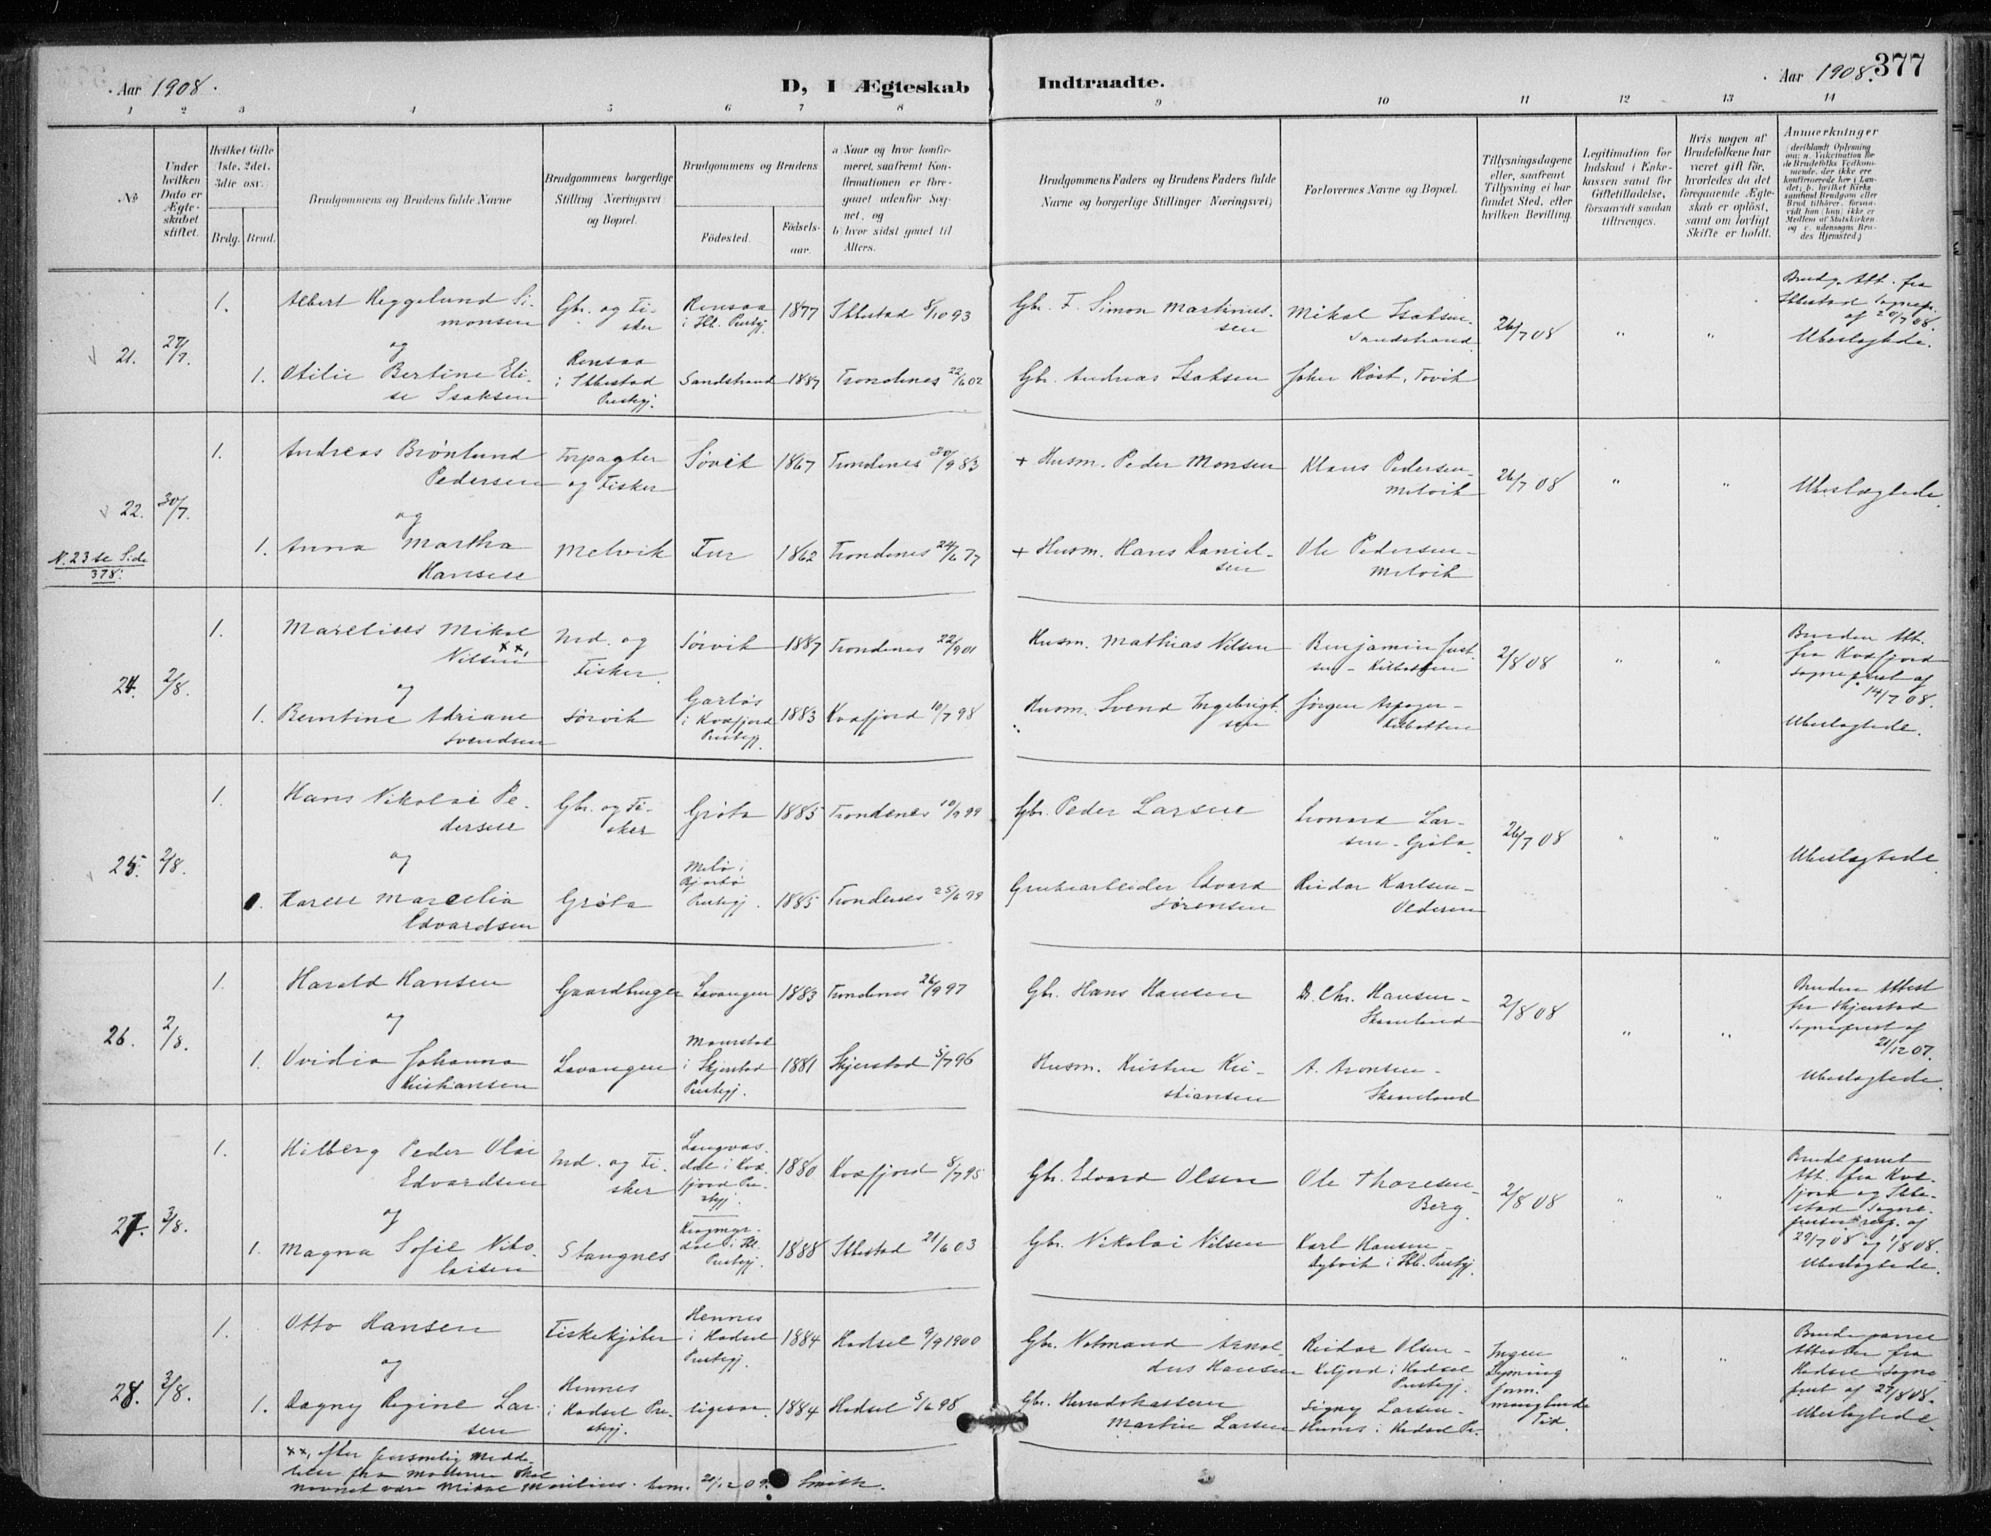 Aar 1908. D, I Ægteskab Indtraadte. Aar 1908. 377
1 2 3 4 5 6 7 8 9 10 11 12 13 14
No
Under hvilken Dato er Ægteskabet stiftet.
Hvilket Gifte 1ste, 2det, 3die osv.
Brdg. Brud.
Brudgommens og Brudens fulde Navne
Brudgommens borgerlige Stilling Næringsvei og Bopæl.
Brudgommens og Brudens
Fødested.
Fødselsaar.
a Naar og hvor konfirmeret, saafremt Konfirmationen er foregaaet udenfor Sognet, og
b) hvor sidst gaaet til Alters.
Brudgommens Faders og Brudens Faders fulde Navne og borgerlige Stillinger Næringsvei)
Forlovernes Navne og Bopæl.
Tillysningsdagene eller, saafremt Tillysning ei har fundet Sted, efter hvilken Bevilling.
Legitimation for Indskud i Enkekassen samt for Giftetilladelse, forsaavidt saadan tiltrænges.
Hvis nogen af Brudefolkene har været gift før, hvorledes da det foregaaende Ægteskab er opløst, samt om lovligt Skifte er holdt.
Anmerkninger
21. 27/7.
1. Albert Heggelund Simonsen
Gbr. og Fisker
Rensaa i Ibl. Prestgj.
1877
Ibbestad 8/10 93
Gbr. F. Simon Martinussen
Mikal Isaksen Sandstrand
26/7 08
" "
Brudg. Att. fra Ibbestad Sognepr. af 20/7 08.
Ubeslægtede.
og
1. Otilie Bertine Elise Isaksen
Rensaa i Ibbestad Prestgj.
Sandstrand
1887
Trondenes 22/6 02
Gbr. Andreas Isaksen
Johan Røst, Tovik
22. 30/7.
1. Andreas Brønlund Pedersen
Forpagter og Fisker
Søvik
1867
Trondenes 30/9 83
+ Husm. Peder Monsen
Klaus Pedersen Melvik
26/7 08
" "
Ubeslægtede.
og
1. Anna Martha Hansen
Melvik
Fur
1862
Trondenes 24/6 77
+ Husm. Hans Danielsen
Ole Pedersen Melvik
N. 23 se Side 378.
24. 2/8.
1. Marelius Mikal Nilsen xx,
Ind. og Fisker.
Sørvik
1887
Trondenes 22/9 01
Husm. Mathias Nilsen
Benjamin
2/8 08
" "
Bruden Att. fra Kvæfjord Sogneprest af 14/7 08.
Ubeslægtede.
og
1. Berntine Adriane Svendsen
Sørvik
i Kvæfjord Prestgj.
1883
Kvæfjord 10/7 98
Husm. Svend Ingebrigtsen
Jørgen
25. 2/8.
1. Hans Nikolai Pedersen
Gbr. og Fisker
Grøta
1885
Trondenes 10/9 99
Gbr. Peder Larsen
Leonard Larsen - Grøta.
26/7 08
" "
Ubeslægtede.
og
1. Karen Marcelia Edvardsen
Grøta
Melø i Bjarkø Prestgj.
1885
Trondenes 25/6 99
Grubearbeider Edvard Sørensen
Reidar Karlsen - Oldersen
26. 2/8.
1. Harald Hansen
Gaardbruger
Lavangen
1883
Trondenes 26/9 97
Gbr. Hans Hansen
D. Chr. Hansen - Skaanland
2/8 08
" "
Bruden Attest fra Skjerstad Sogneprest af 21/12 07.
Ubeslægtede.
og
1. Ovidia Johanna Kristiansen
Lavangen
i Skjerstad Prestgj.
1881
Skjerstad 5/7 96
Husm. Kristen Kristiansen
A. Aronsen - Skaanland
27. 3/8.
1. Hilberg Peder Olai Edvardsen
Ind. og Fisker
Langvasdal i Kvæfjord Prestgj.
1880
Kvæfjord 8/7 95
Gbr. Edvard Olsen
Ole Thoresen Berg.
2/8 08
" "
Brudeparret Att. fra Kvæfjord og Ibbestad Sogneprester resp. af 29/7 08 og 1/8 08.
Ubeslægtede.
og
1. Magna Sofie Nikolaisen
Stangnes
i Ibl. Prestgj.
1888
Ibbestad 21/6 03
Gbr. Nikolai Nilsen
Karl Hansen Dybvik i Ibl. Prestgj.
28. 3/8.
1. Otto Hansen
Fiskekjøber
Hennes i Hadsel Prestgj.
1884
Hadsel 9/9 1900
Gbr. Normand Arnoldus Hansen
Reidar Olsen - i Hadsel Prestgj.
Ingen Lysning form. manglende Tid.
" "
Brudeparret Attester fra Hadsel Sogneprest af 27/8 08.
Ubeslægtede.
og
1. Dagny Regine Larsen
Hennes i Hadsel Prestgj.
ligesaa
1884
Hadsel 5/6 98
Gbr. Herredskasserer Martin Larsen
Signy Larsen - Hennes i Hadsel Pr.
xx, efter personlig Meddelelse fra Moderen skal
navnet være Mikal Marelius. 21/12 09. Smith.